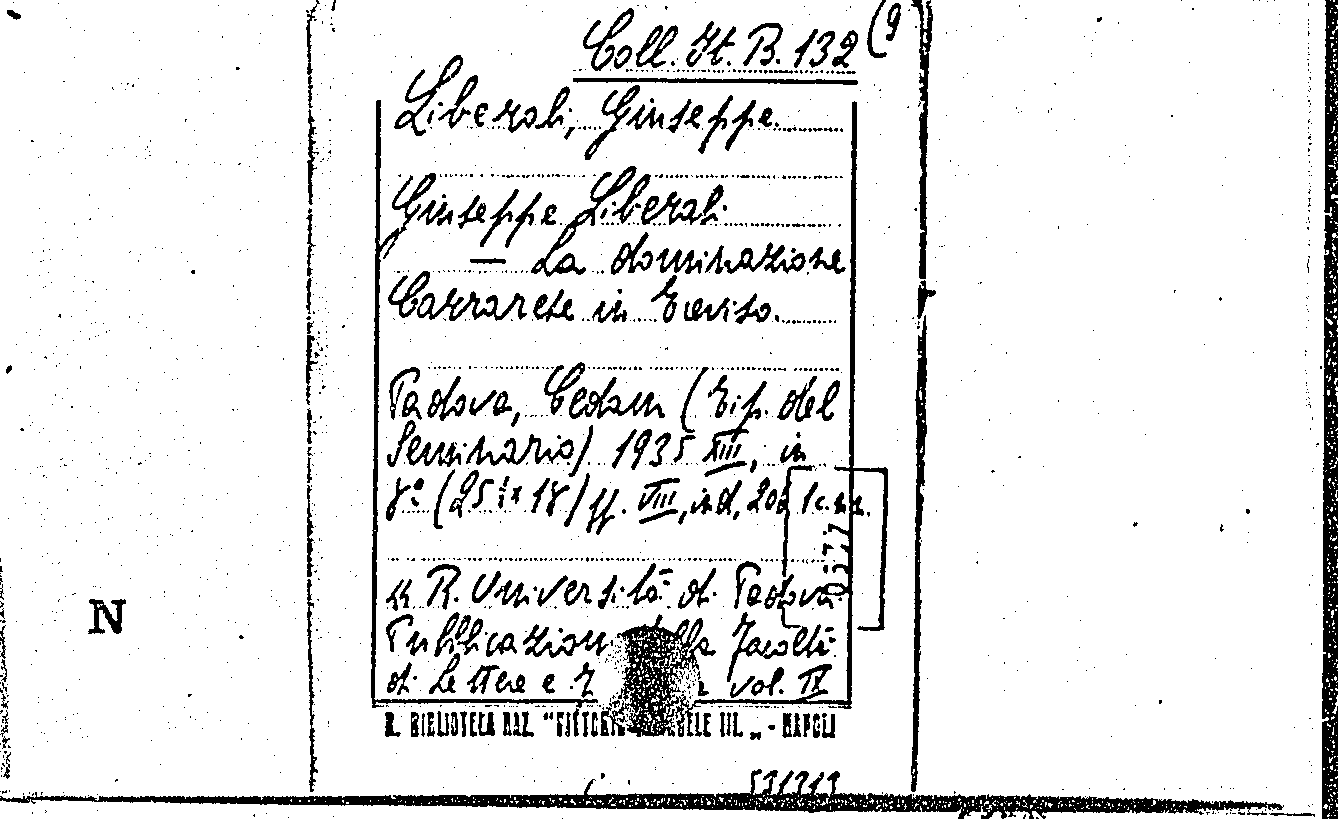 Coll. It. B. 132 (9
Liberali, Giuseppe.
Giuseppe Liberali
— La dominazione
Carrarese in Treviso.
Padova, Cedam (Tip. del
Seminario) 1935 XIII, in
8º (25 ½ x 18) pp. VIII, ind, 1 c. n. n.
« R. Università di Padova
Pubblicazioni della Facoltà
di Lettere e vol. IV
R. BIBLIOTECA NAZ. "VITTORIO EMANUELE III. „ - NAPOLI
N